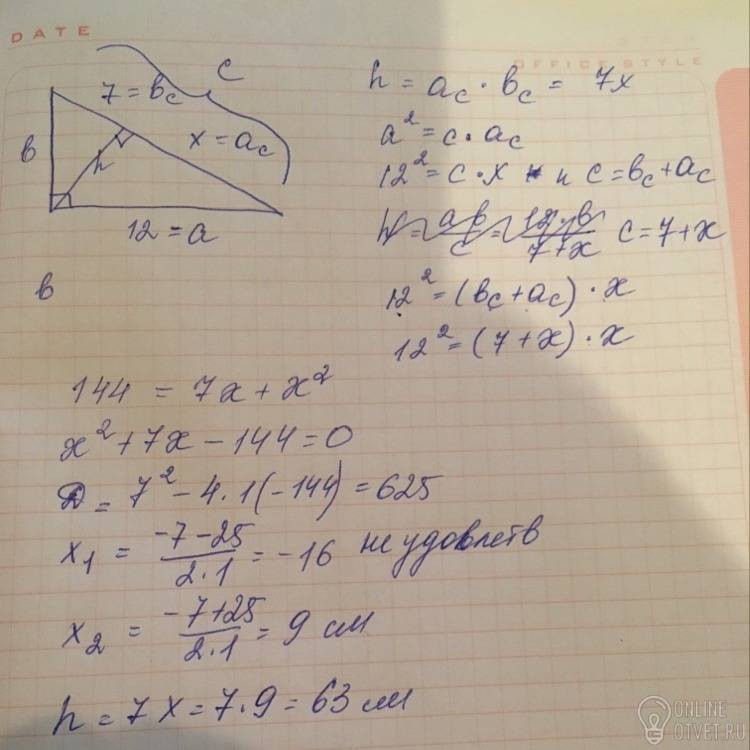 DATE
OFFICE STYLE
7 = b_c
c
в
h
x = a_c
12 = a
в
h = a_c · b_c = 7x
a² = c · a_c
12² = c · x и c = b_c + a_c
h = ав/c = 12·в/7+x c = 7 + x
12² = (b_c + a_c) · x
12² = (7 + x) · x
144 = 7x + x²
x² + 7x − 144 = 0
D = 7² − 4 · 1(−144) = 625
x₁ = −7−25/2·1 = −16 не удовлетв
x₂ = −7+25/2·1 = 9 см
h = 7x = 7·9 = 63 см
ONLINE
OTVET.RU